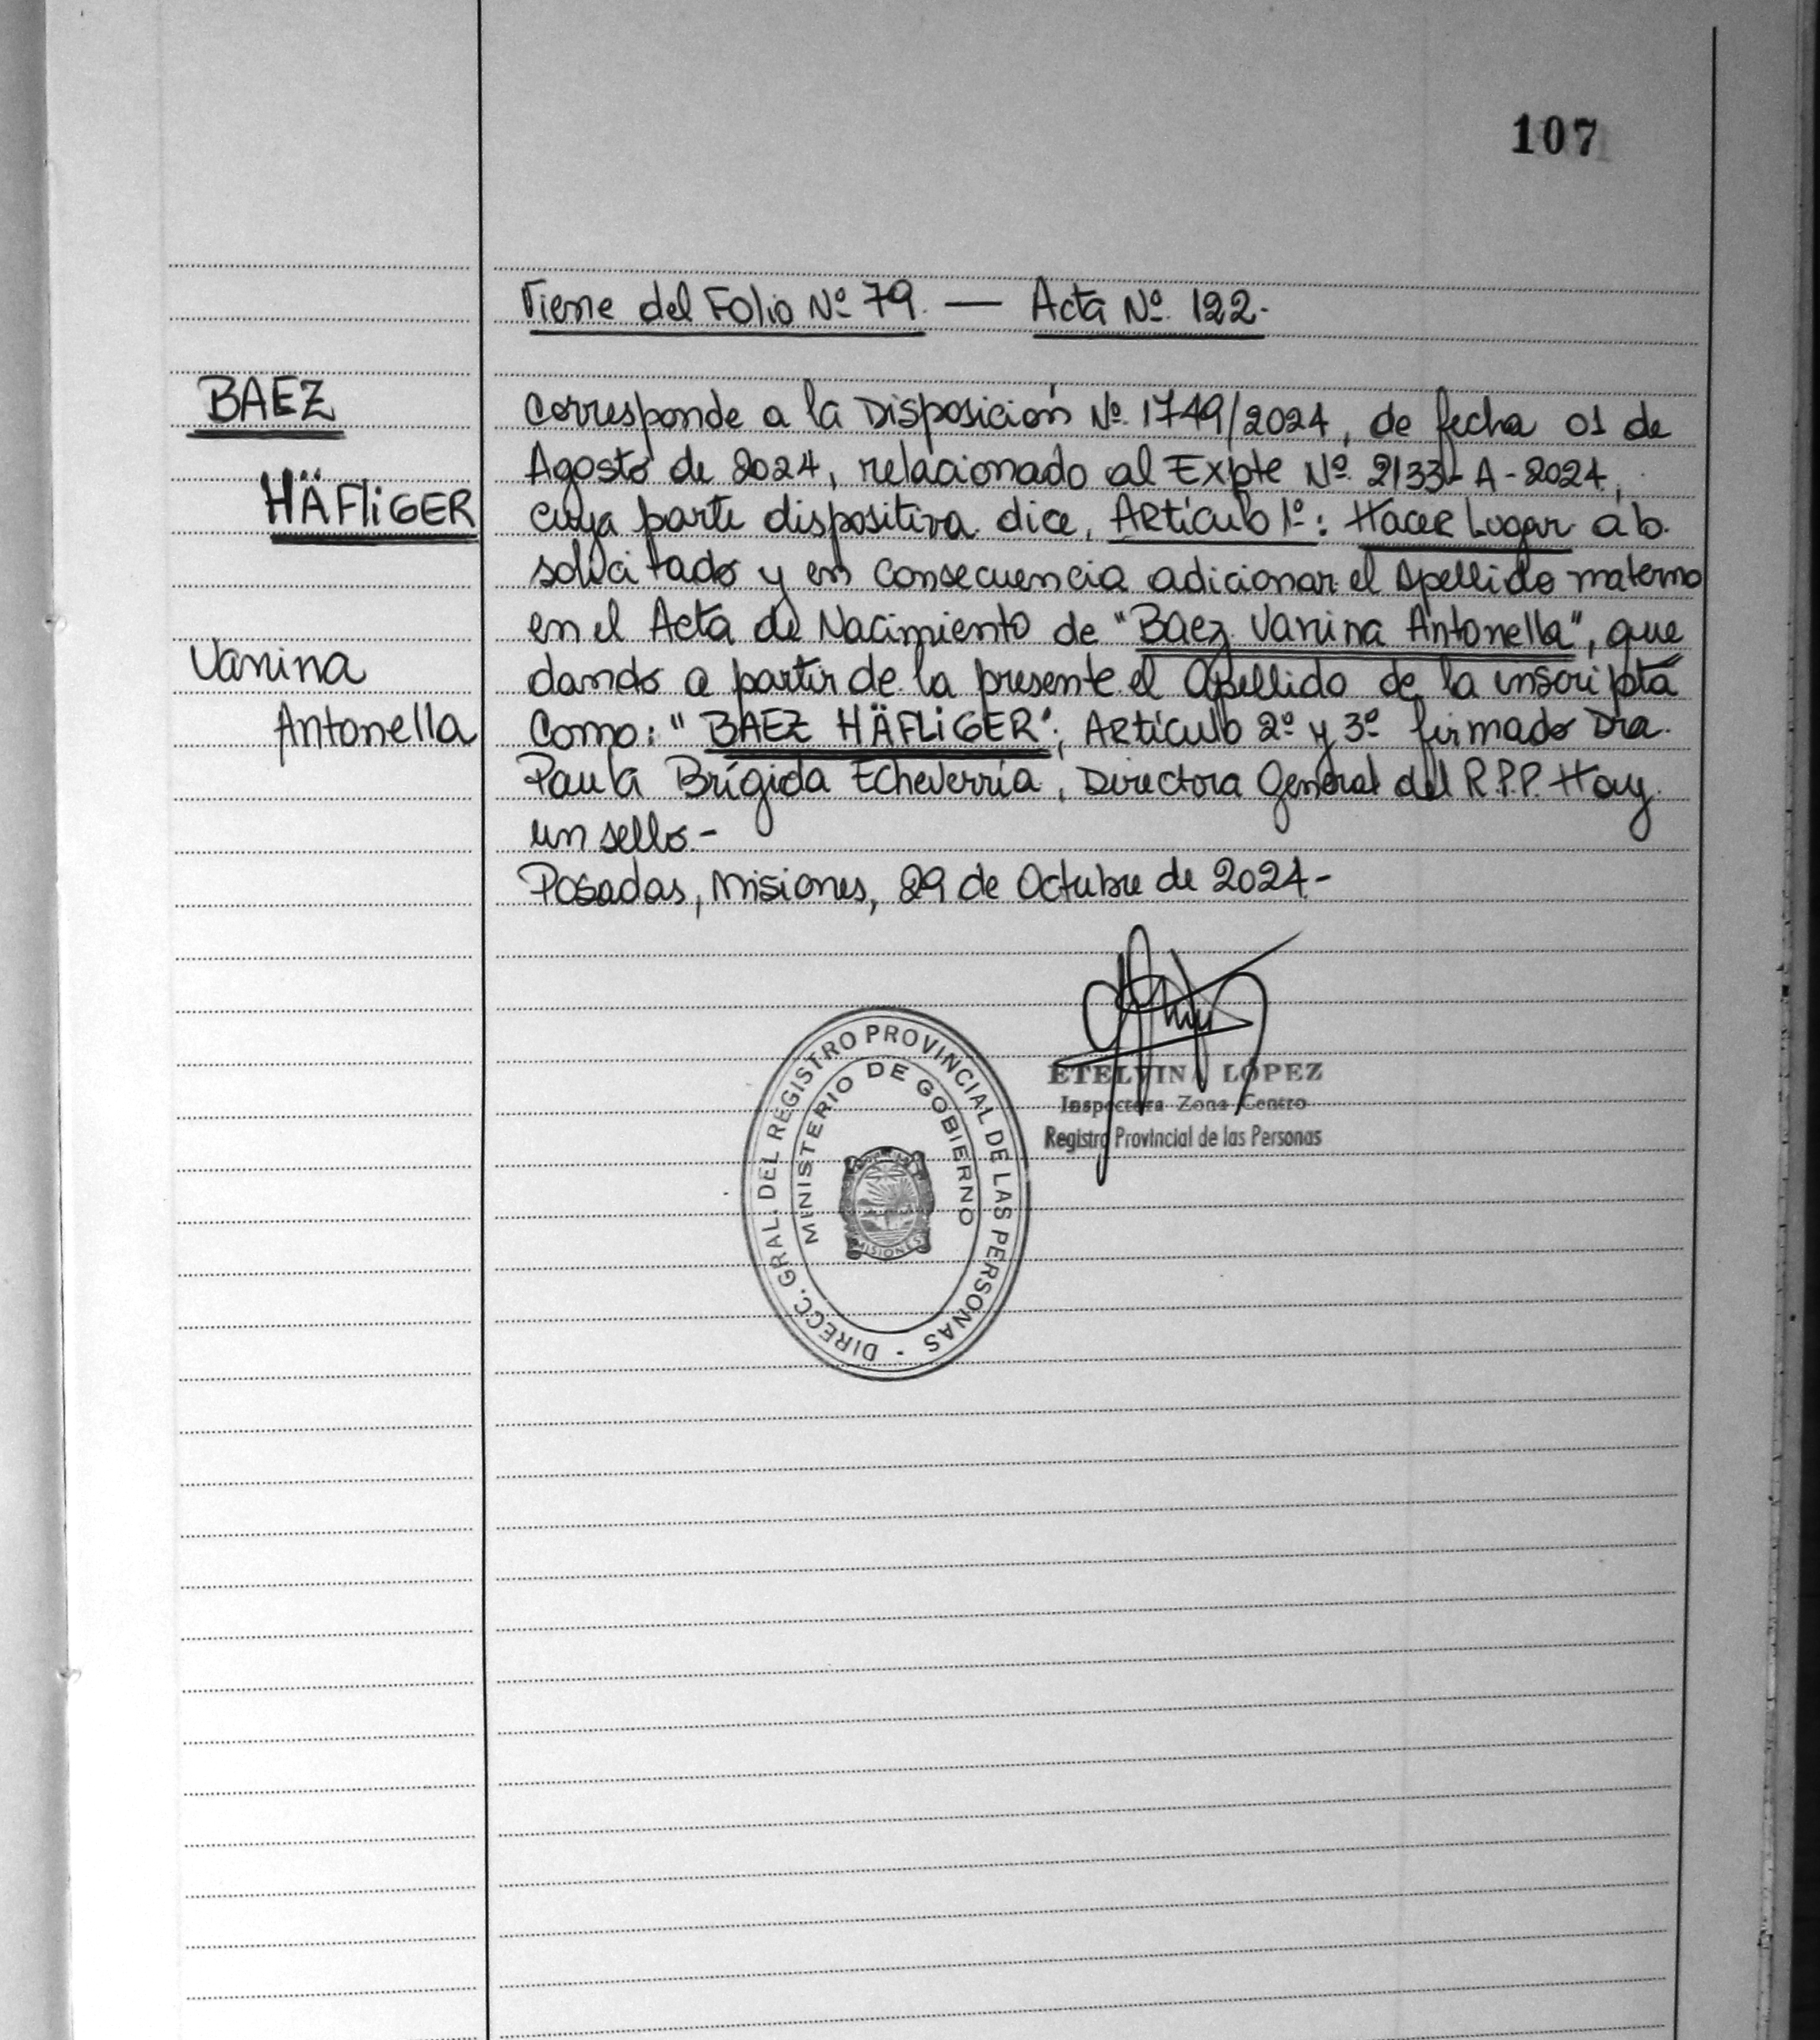 107
Viene del Folio Nº 79. — Acta Nº 122.-
BAEZ
HÄFLiGER
Vanina
Antonella
Corresponde a la Disposición Nº 1749/2024, de fecha 01 de
Agosto de 2024, relacionado al Expte Nº 2133-A-2024,
cuya parte dispositiva dice, Artículo 1º: Hacer Lugar a lo
solicitado y en consecuencia adicionar el Apellido materno
en el Acta de Nacimiento de "Baez Vanina Antonella", que
dando a partir de la presente el Apellido de la inscripta
Como: "BAEZ HÄFLiGER"; Artículo 2º y 3º firmado Dra.
Paula Brígida Echeverría, Directora General del R.P.P. Hay
un sello.-
Posadas, Misiones, 29 de Octubre de 2024.-
ETELVINA LÓPEZ
Inspectora Zona Centro
Registro Provincial de las Personas
DIRECC. GRAL. DEL REGISTRO PROVINCIAL DE LAS PERSONAS -
MINISTERIO DE GOBIERNO
MISIONES